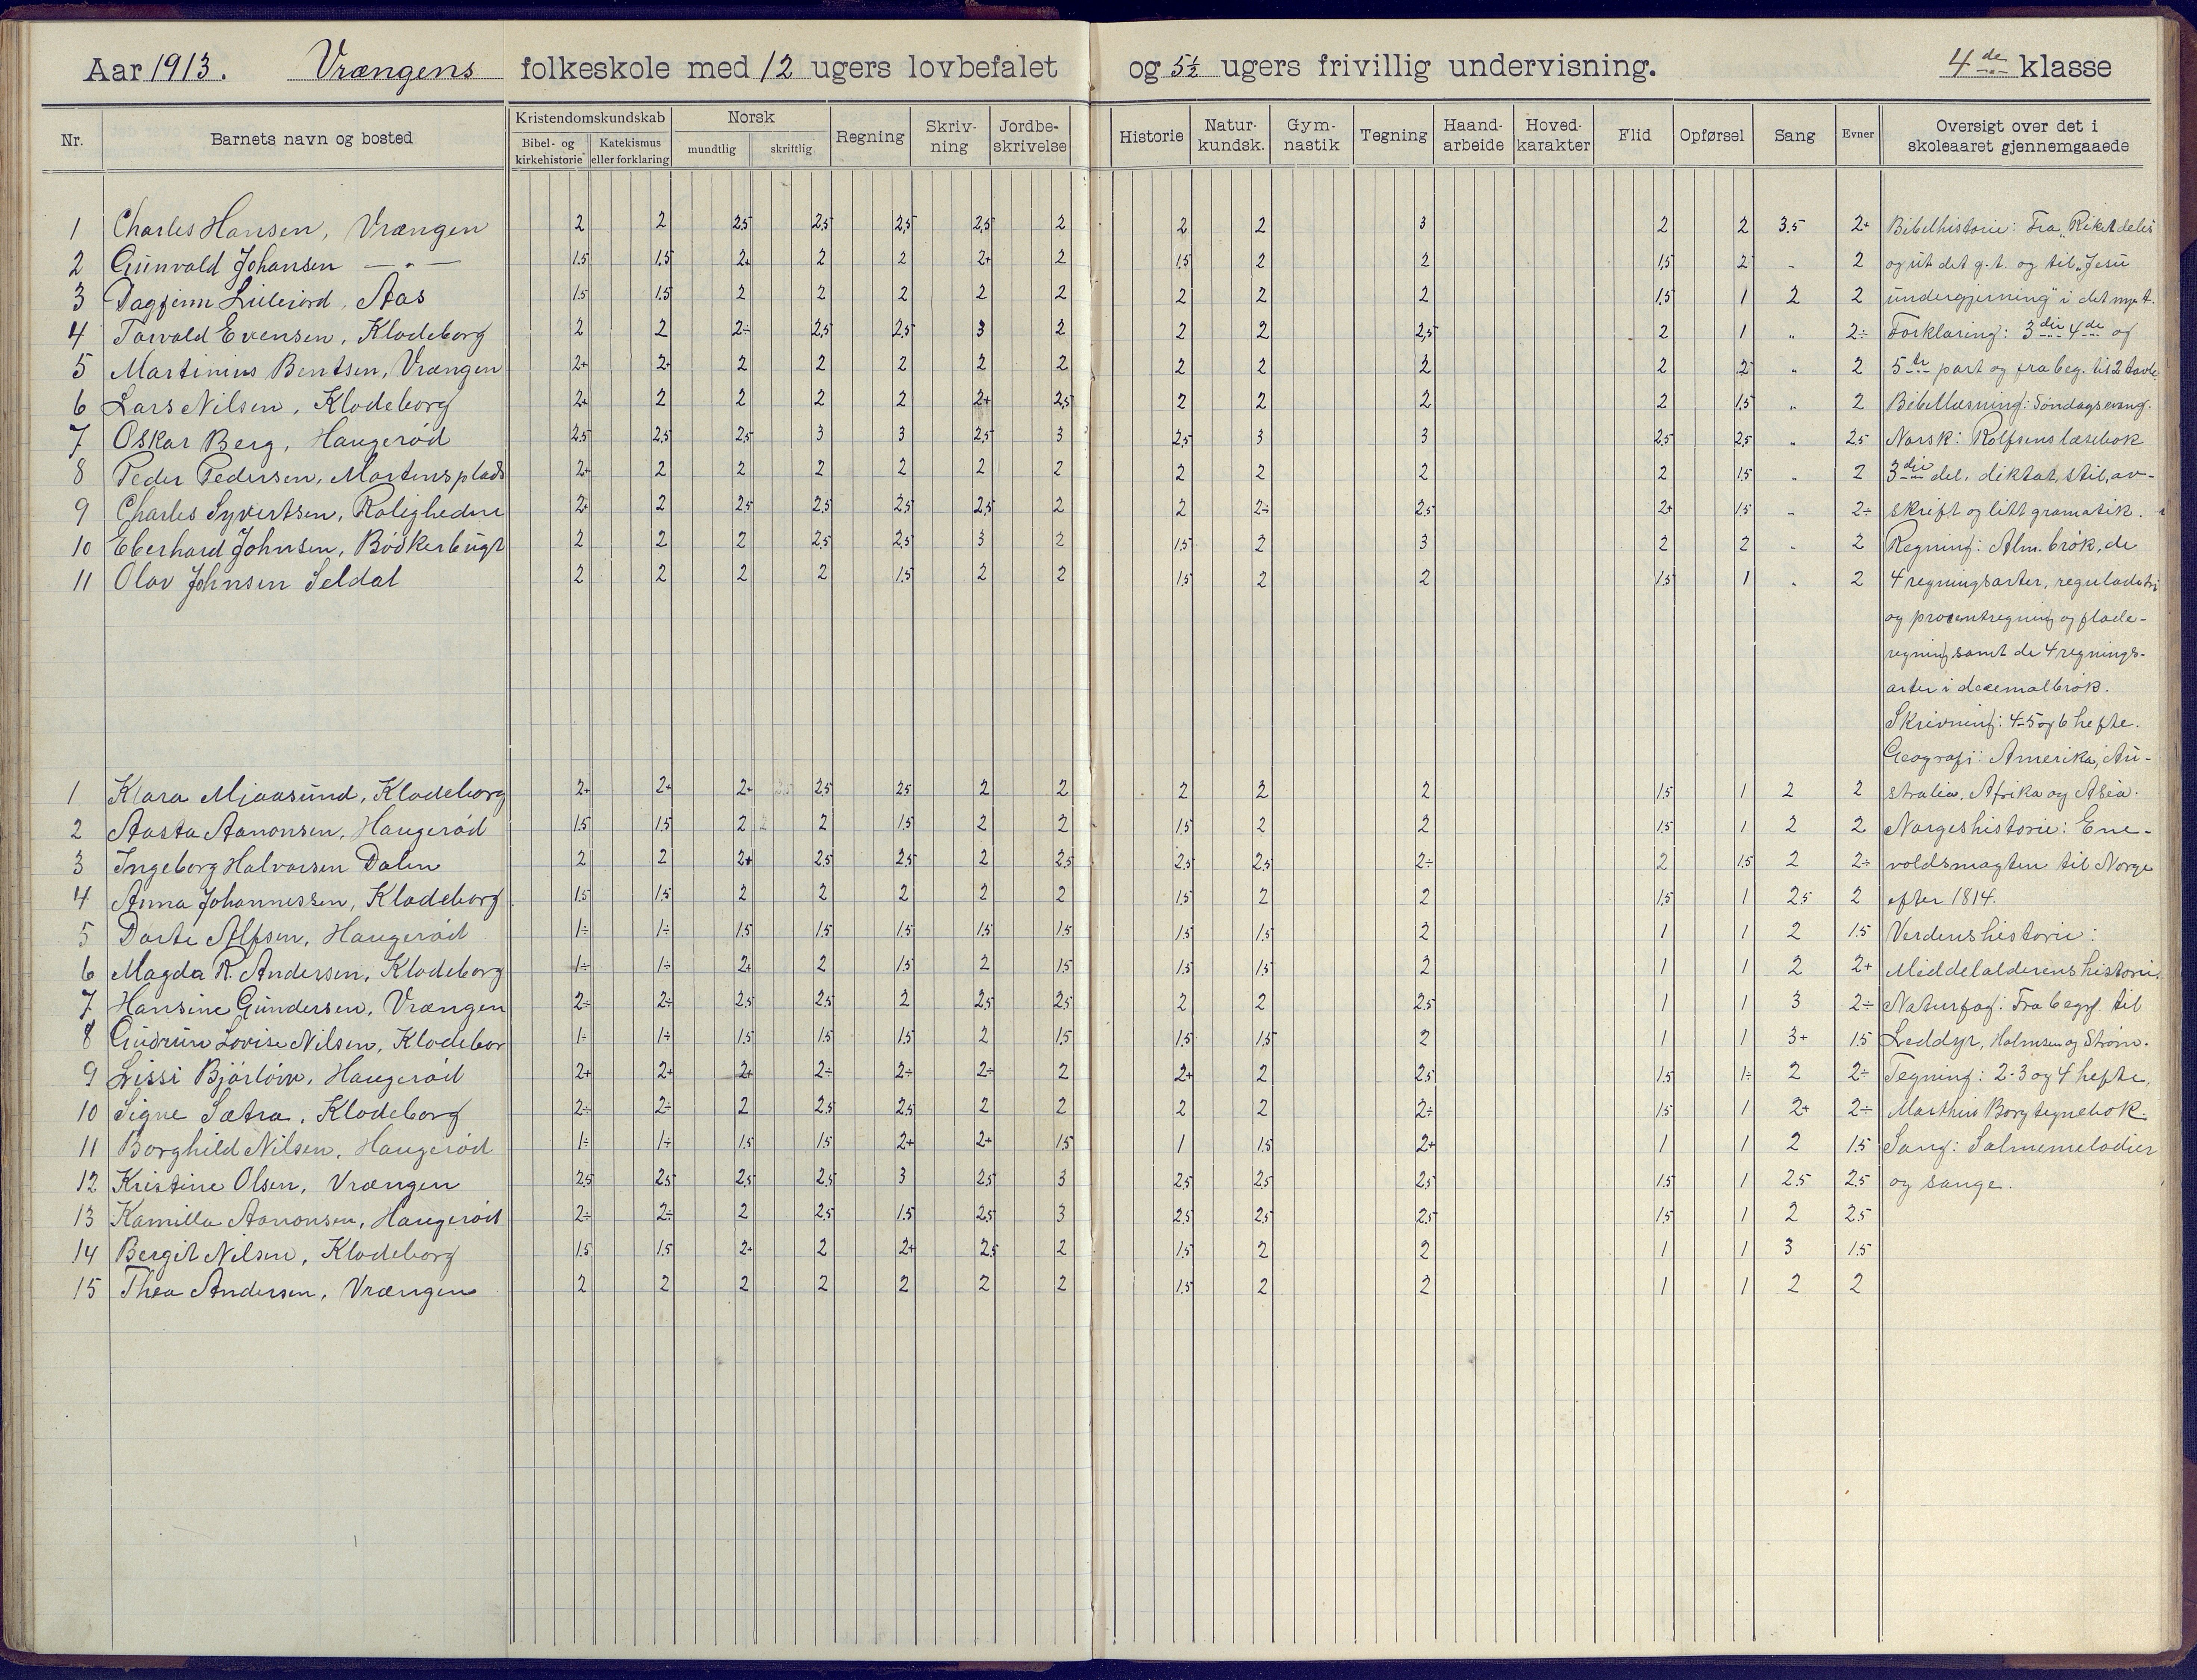 Aar 1913. Vrængens folkeskole med 12 ugers lovbefalet og 5½ ugers frivillig undervisning. 4de klasse
Nr. Barnets navn og bosted Kristendomskundskab Norsk Regning Skriv-ning Jordbe-skrivelse Historie Natur-kundsk. Gym-nastik Tegning Haand-arbeide Hoved-karakter Flid Opførsel Sang Evner Oversigt over det i skoleaaret gjennemgaaede
Bibel- og kirkehistorie Katekismus eller forklaring mundtlig skriftlig
1 Charles Hansen, Vrængen 2 2 2,5 2,5 2,5 2,5 2 2 2 3 2 2 3.5 2+ Bibelhistorie: Fra "Riket deles
2 Gunvald Johansen — " — 1.5 1,5 2+ 2 2 2+ 2 1,5 2 2 1,5 2 - 2 og ut det g.t. og til "Jesu
3 Dagfinn Lillejord, Aas 1.5 1.5 2 2 2 2 2 2 2 2 1,5 1 2 2 undergjerning" i det nye t.
4 Torvald Evensen, Klodeborg 2 2 2÷ 2,5 2,5 3 2 2 2 2,5 2 1 " 2÷ Forklaring: 3die 4de og
5 Martinius Bentsen, Vrængen 2+ 2+ 2 2 2 2 2 2 2 2 2 2 " 2 5te part og fra beg. til 2 tavle
6 Lars Nilsen, Klodeborg 2+ 2 2 2 2 2+ 2,5 2 2 2 2 1,5 " 2 Bibellæsning: Søndagsevang.
7 Oskar Berg, Haugerød 2,5 2,5 2,5 3 3 2,5 3 2,5 3 3 2,5 2,5 " 2,5 Norsk: Rolfsens læsebok
8 Peder Pedersen, Mortensplads 2+ 2 2 2 2 2 2 2 2 2 2 1.5 " 2 3die del, diktat, stil, av-
9 Charles Syvertsen, Roligheden 2+ 2 2,5 2,5 2,5 2,5 2 2 2÷ 2,5 2+ 1,5 " 2÷ skrift og litt gramatik.
10 Eberhard Johnsen, Bødkerbugt 2 2 2 2,5 2,5 3 2 1,5 2 3 2 2 - 2 Regning: Alm. brøk, de
11 Olav Johnsen Seldal 2 2 2 2 1.5 2 2 1,5 2 2 1,5 1 " 2 4 regningsarter, reguladetri
og procentregning og flade-
regning samt de 4 regnings-
arter i decemalbrøk.
Skrivning: 4-5 og 6 hefte.
Geografi: Amerika, Au-
1 Klara Mjaasund, Klodeborg 2+ 2+ 2+ 2,5 2,5 2 2 2 2 2 1,5 1 2 2 stralia, Afrika og Asia.
2 Aasta Aanonsen, Haugerød 1.5 1.5 2 2 1.5 2 2 1,5 2 2 1,5 1 2 2 Norgeshistorie: Ene-
3 Ingeborg Halvorsen Dalen 2 2 2+ 2,5 2,5 2 2,5 2,5 2,5 2÷ 2 1.5 2 2÷ voldsmagten til Norge
4 Anna Johannessen, Klodeborg 1.5 1.5 2 2 2 2 2 1,5 2 2 1,5 1 2.5 2 efter 1814.
5 Dorte Alfsen, Haugerød 1÷ 1÷ 1.5 1.5 1.5 1.5 1.5 1.5 1,5 2 1 1 2 1.5 Verdenshistorie:
6 Magda R. Andersen, Klodeborg 1÷ 1÷ 2+ 2 1.5 2 1.5 1.5 1,5 2 1 1 2 2+ Middelalderens historie.
7 Hansine Gundersen, Vrængen 2÷ 2÷ 2,5 2,5 2 2,5 2,5 2 2 2,5 1 1 3 2÷ Naturfag: Fra beg. til
8 Gudrun Lovise Nilsen, Klodebor 1÷ 1÷ 1.5 1.5 1.5 2 1,5 1.5 1,5 2 1 1 3+ 1.5 Leddyr, Holmsen og Strøm.
9 Lissi Bjørløw, Haugerød 2+ 2+ 2+ 2÷ 2÷ 2÷ 2 2+ 2 2,5 1,5 1÷ 2 2÷ Tegning: 2-3 og 4 hefte,
10 Signe Sætra, Klodeborg 2÷ 2÷ 2 2,5 2,5 2 2 2 2 2÷ 1,5 1 2+ 2÷ Marthin Borg tegnebok.
11 Borghild Nilsen, Haugerød 1÷ 1÷ 1.5 1.5 2+ 2+ 1.5 1 1.5 2+ 1 1 2 1.5 Sang: Salmemelodier
12 Kristine Olsen, Vrængen 2,5 2,5 2,5 2,5 3 2,5 3 2,5 2,5 2,5 1,5 1 2.5 2.5 og sange.
13 Kamilla Aanonsen, Haugerød 2÷ 2÷ 2 2,5 1.5 2,5 3 2,5 2,5 2,5 1,5 1 2 2.5
14 Bergit Nilsen, Klodeborg 1.5 1.5 2+ 2 2+ 2,5 2 1,5 2 2 1 1 3 1.5
15 Thea Andersen, Vrængen 2 2 2 2 2 2 2 1.5 2 2 1 1 2 2